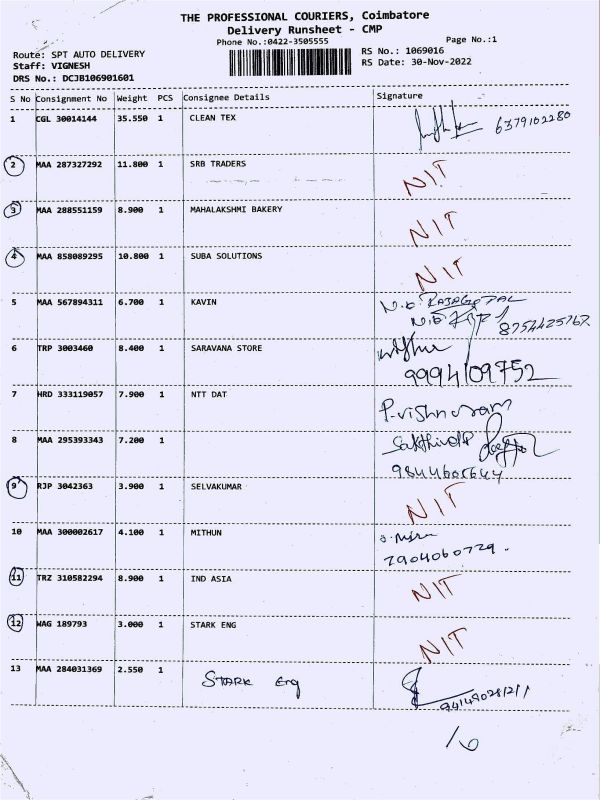 THE PROFESSIONAL COURIERS, Coimbatore
Delivery Runsheet - CMP
Phone No.:0422-3505555
Page No.:1
Route: SPT AUTO DELIVERY
RS No.: 1069016
Staff: VIGNESH
RS Date: 30-Nov-2022
DRS No.: DCJB106901601
S No Consignment No Weight PCS Consignee Details Signature
1 CGL 30014144 35.550 1 CLEAN TEX 6379102280
2 MAA 287327292 11.800 1 SRB TRADERS NIT
3 MAA 288551159 8.900 1 MAHALAKSHMI BAKERY NIT
4 MAA 858089295 10.800 1 SUBA SOLUTIONS NIT
5 MAA 567894311 6.700 1 KAVIN N.B. RAJAGOPAL
8754425767
6 TRP 3003460 8.400 1 SARAVANA STORE
9994109752
7 HRD 333119057 7.900 1 NTT DAT P.vishnuram
8 MAA 295393343 7.200 1 Sakthivel P
9844606644
9 RJP 3042363 3.900 1 SELVAKUMAR NIT
10 MAA 300002617 4.100 1 MITHUN
7904060729.
11 TRZ 310582294 8.900 1 IND ASIA NIT
12 WAG 189793 3.000 1 STARK ENG NIT
13 MAA 284031369 2.550 1 STARK Eng